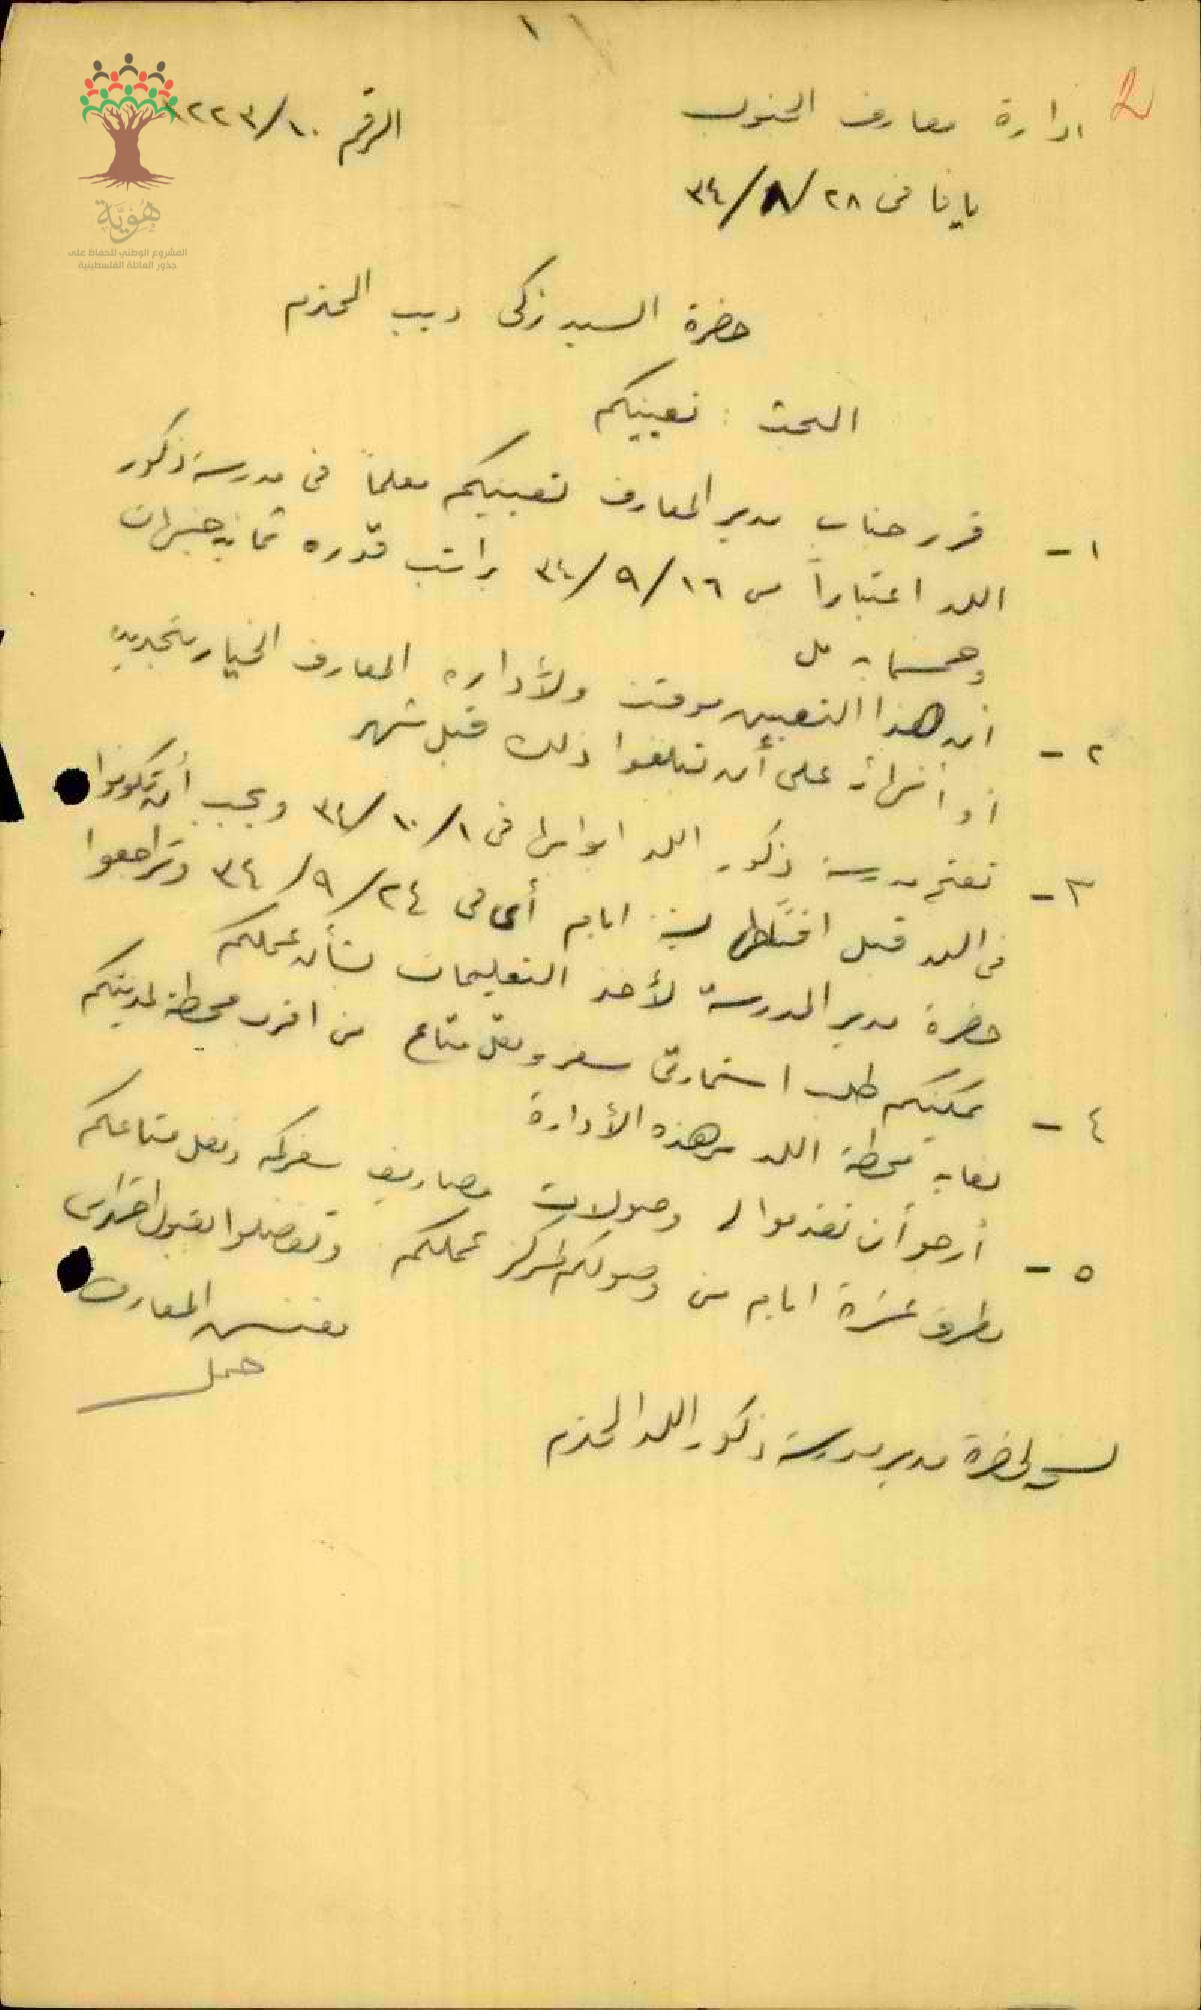 ١
2
ادارة معارف الجنوب
الرقم ١٠/١٢٢٣
يافا في ٢٨/٨/٣٤
هُوِيَّة
المشروع الوطني للحفاظ على
جذور العائلة الفلسطينية
حضرة السيد زكي ديب المحترم
البحث : تعيينكم
١- قرر جناب مدير المعارف تعيينكم معلماً في مدرسة ذكور
اللد اعتباراً من ١٦/٩/٣٤ براتب قدره ثمانية جنيهات
وخمسماية مل
٢- ان هذا التعيين موقت ولأدارة المعارف الخيار بتجديده
او انهائه على أن تبلغوا ذلك قبل شهر
٣- تفتح مدرسة ذكور اللد ابوابها في ١/١٠/٣٤ ويجب أن تكونوا
في اللد قبل افتتاحها ايام أي في ٢٤/٩/٣٤ وتراجعوا
حضرة مدير المدرسة لأخذ التعليمات بشأن عملكم
٤- يمكنكم طلب استمارتي سفر ونقل متاع من اقرب محطة لمدينتكم
لغاية محطة اللد من هذه الأدارة
٥- أرجو أن تقدموا لي وصولات مصاريف سفركم ونقل متاعكم
بظرف عشرة ايام من وصولكم لمركز عملكم وتفضلوا بقبول احترامي
مفتش المعارف
نسخة لحضرة مدير مدرسة ذكور اللد المحترم